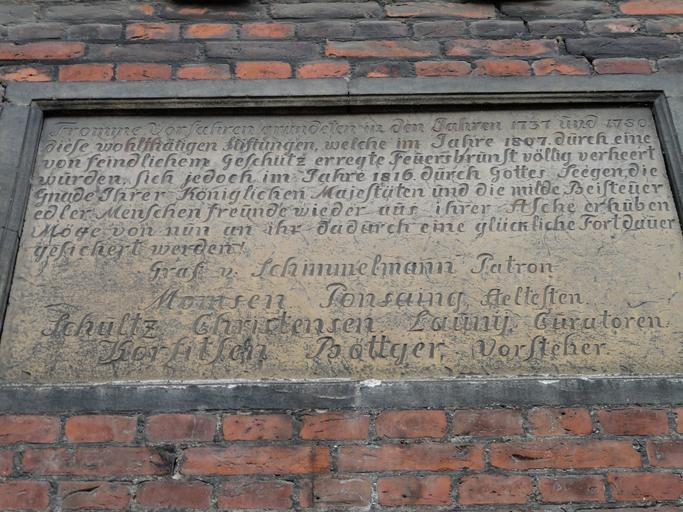 Fromme Vorfahren gründeten in den Jahren 1737 und 1750
diese wohlthätigen Stiftungen, welche im Jahre 1807. dürch eine
von feindlichem Geschütz erregte Feüersbrünst völlig verheert
würden, sich jedoch im Jahre 1816. dürch Gottes Seegen, die
Gnade Ihrer Königlichen Majestäten und die milde Beisteüer
edler Menschen freünde wieder aüs ihrer Asche erhüben
Möge von nün an ihr dadürch eine glückliche Fortdaüer
gesichert werden!
Graf v. Schimmelmann Patron
Momsen Ponsaing Aeltesten.
Schultz Christensen Launij. Curatoren
Böttger, Vorsteher.